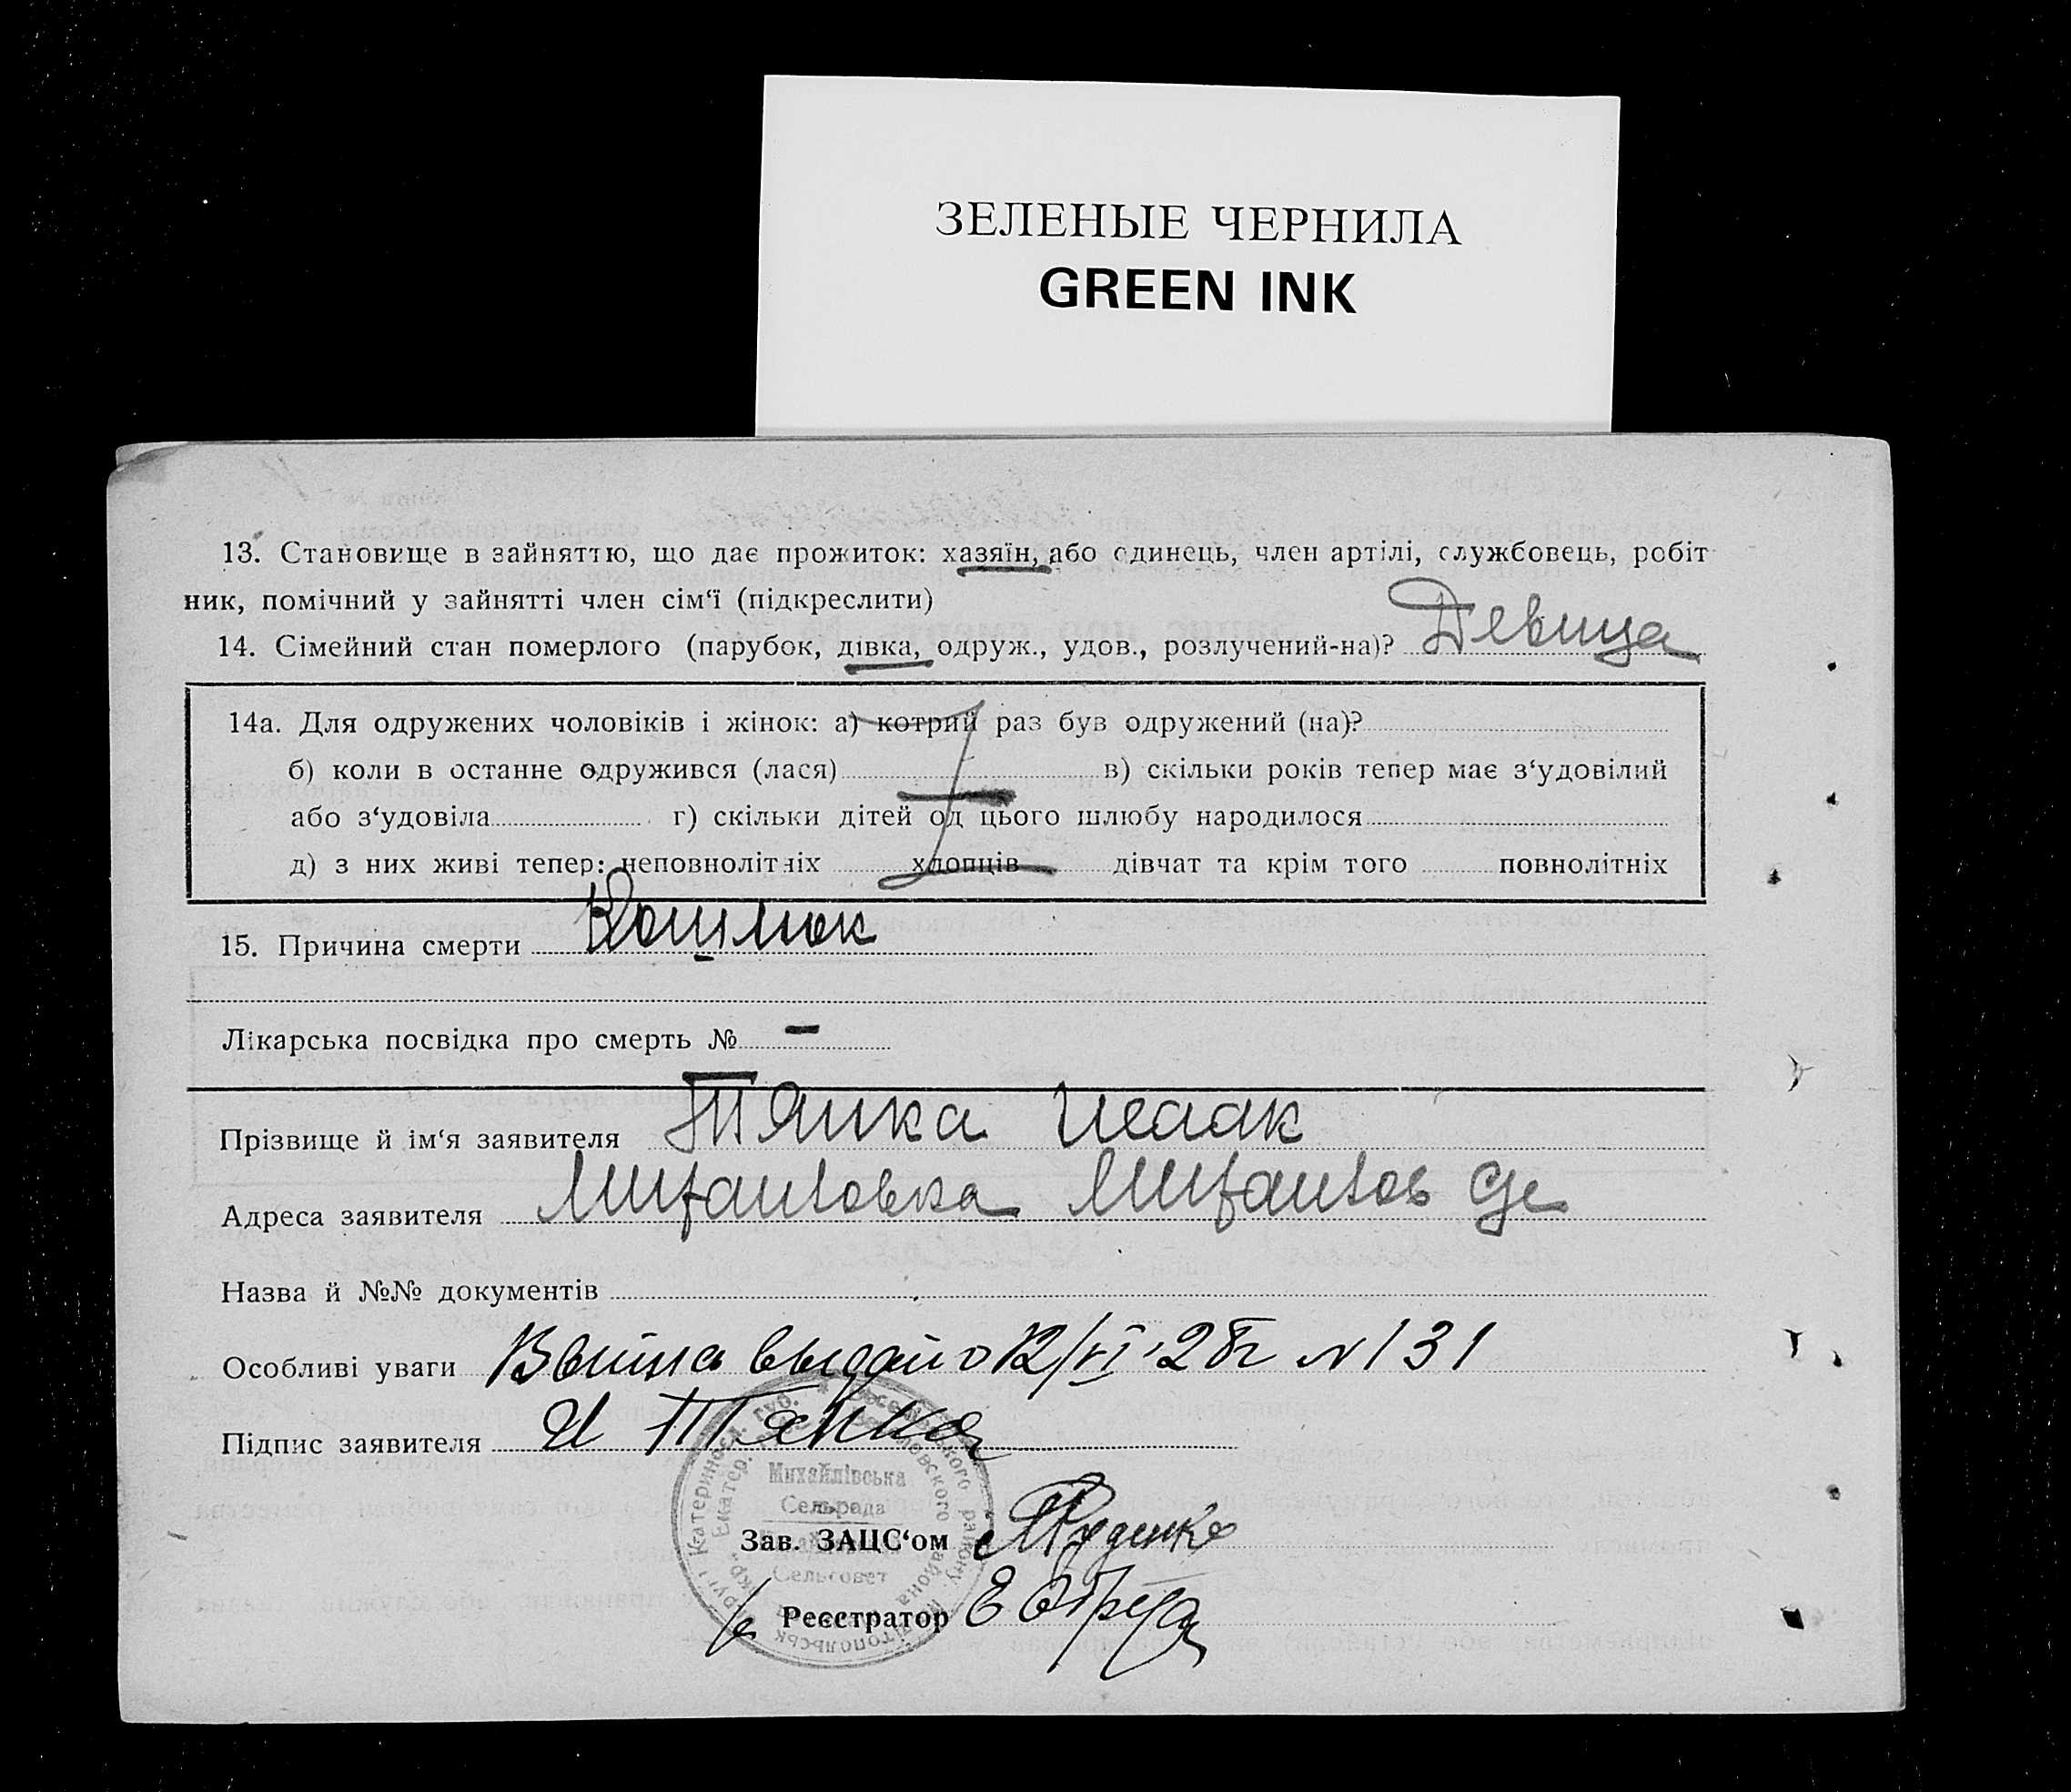 ЗЕЛЕНЫЕ ЧЕРНИЛА
GREEN INK
13. Становище в зайняттю, що дає прожиток: хазяїн, або одинець, член артілі, службовець, робіт
ник, помічний у зайнятті член сім‘ї (підкреслити)
14. Сімейний стан померлого (парубок, дівка, одруж., удов., розлучений-на)? Девица
14а. Для одружених чоловіків і жінок: а) котрий раз був одружений (на)?
б) коли в останне одружився (лася) в) скільки років тепер має з‘удовілий
або з‘удовіла г) скільки дітей од цього шлюбу народилося
д) з них живі тепер: неповнолітніх хлопців дівчат та крім того повнолітніх
15. Причина смерти Кошлюк
Лікарська посвідка про смерть № –
Прізвище й ім‘я заявителя Тянка Исаак
Адреса заявителя Михайловка Михайлов с/с
Назва й №№ документів
Особливі уваги выдано 12/VI 28г N 131
Підпис заявителя И Тянка
Михайлівська
Сельрада
Зав. ЗАЦС‘ом Руденко
Сельсовет
Реєстратор Е